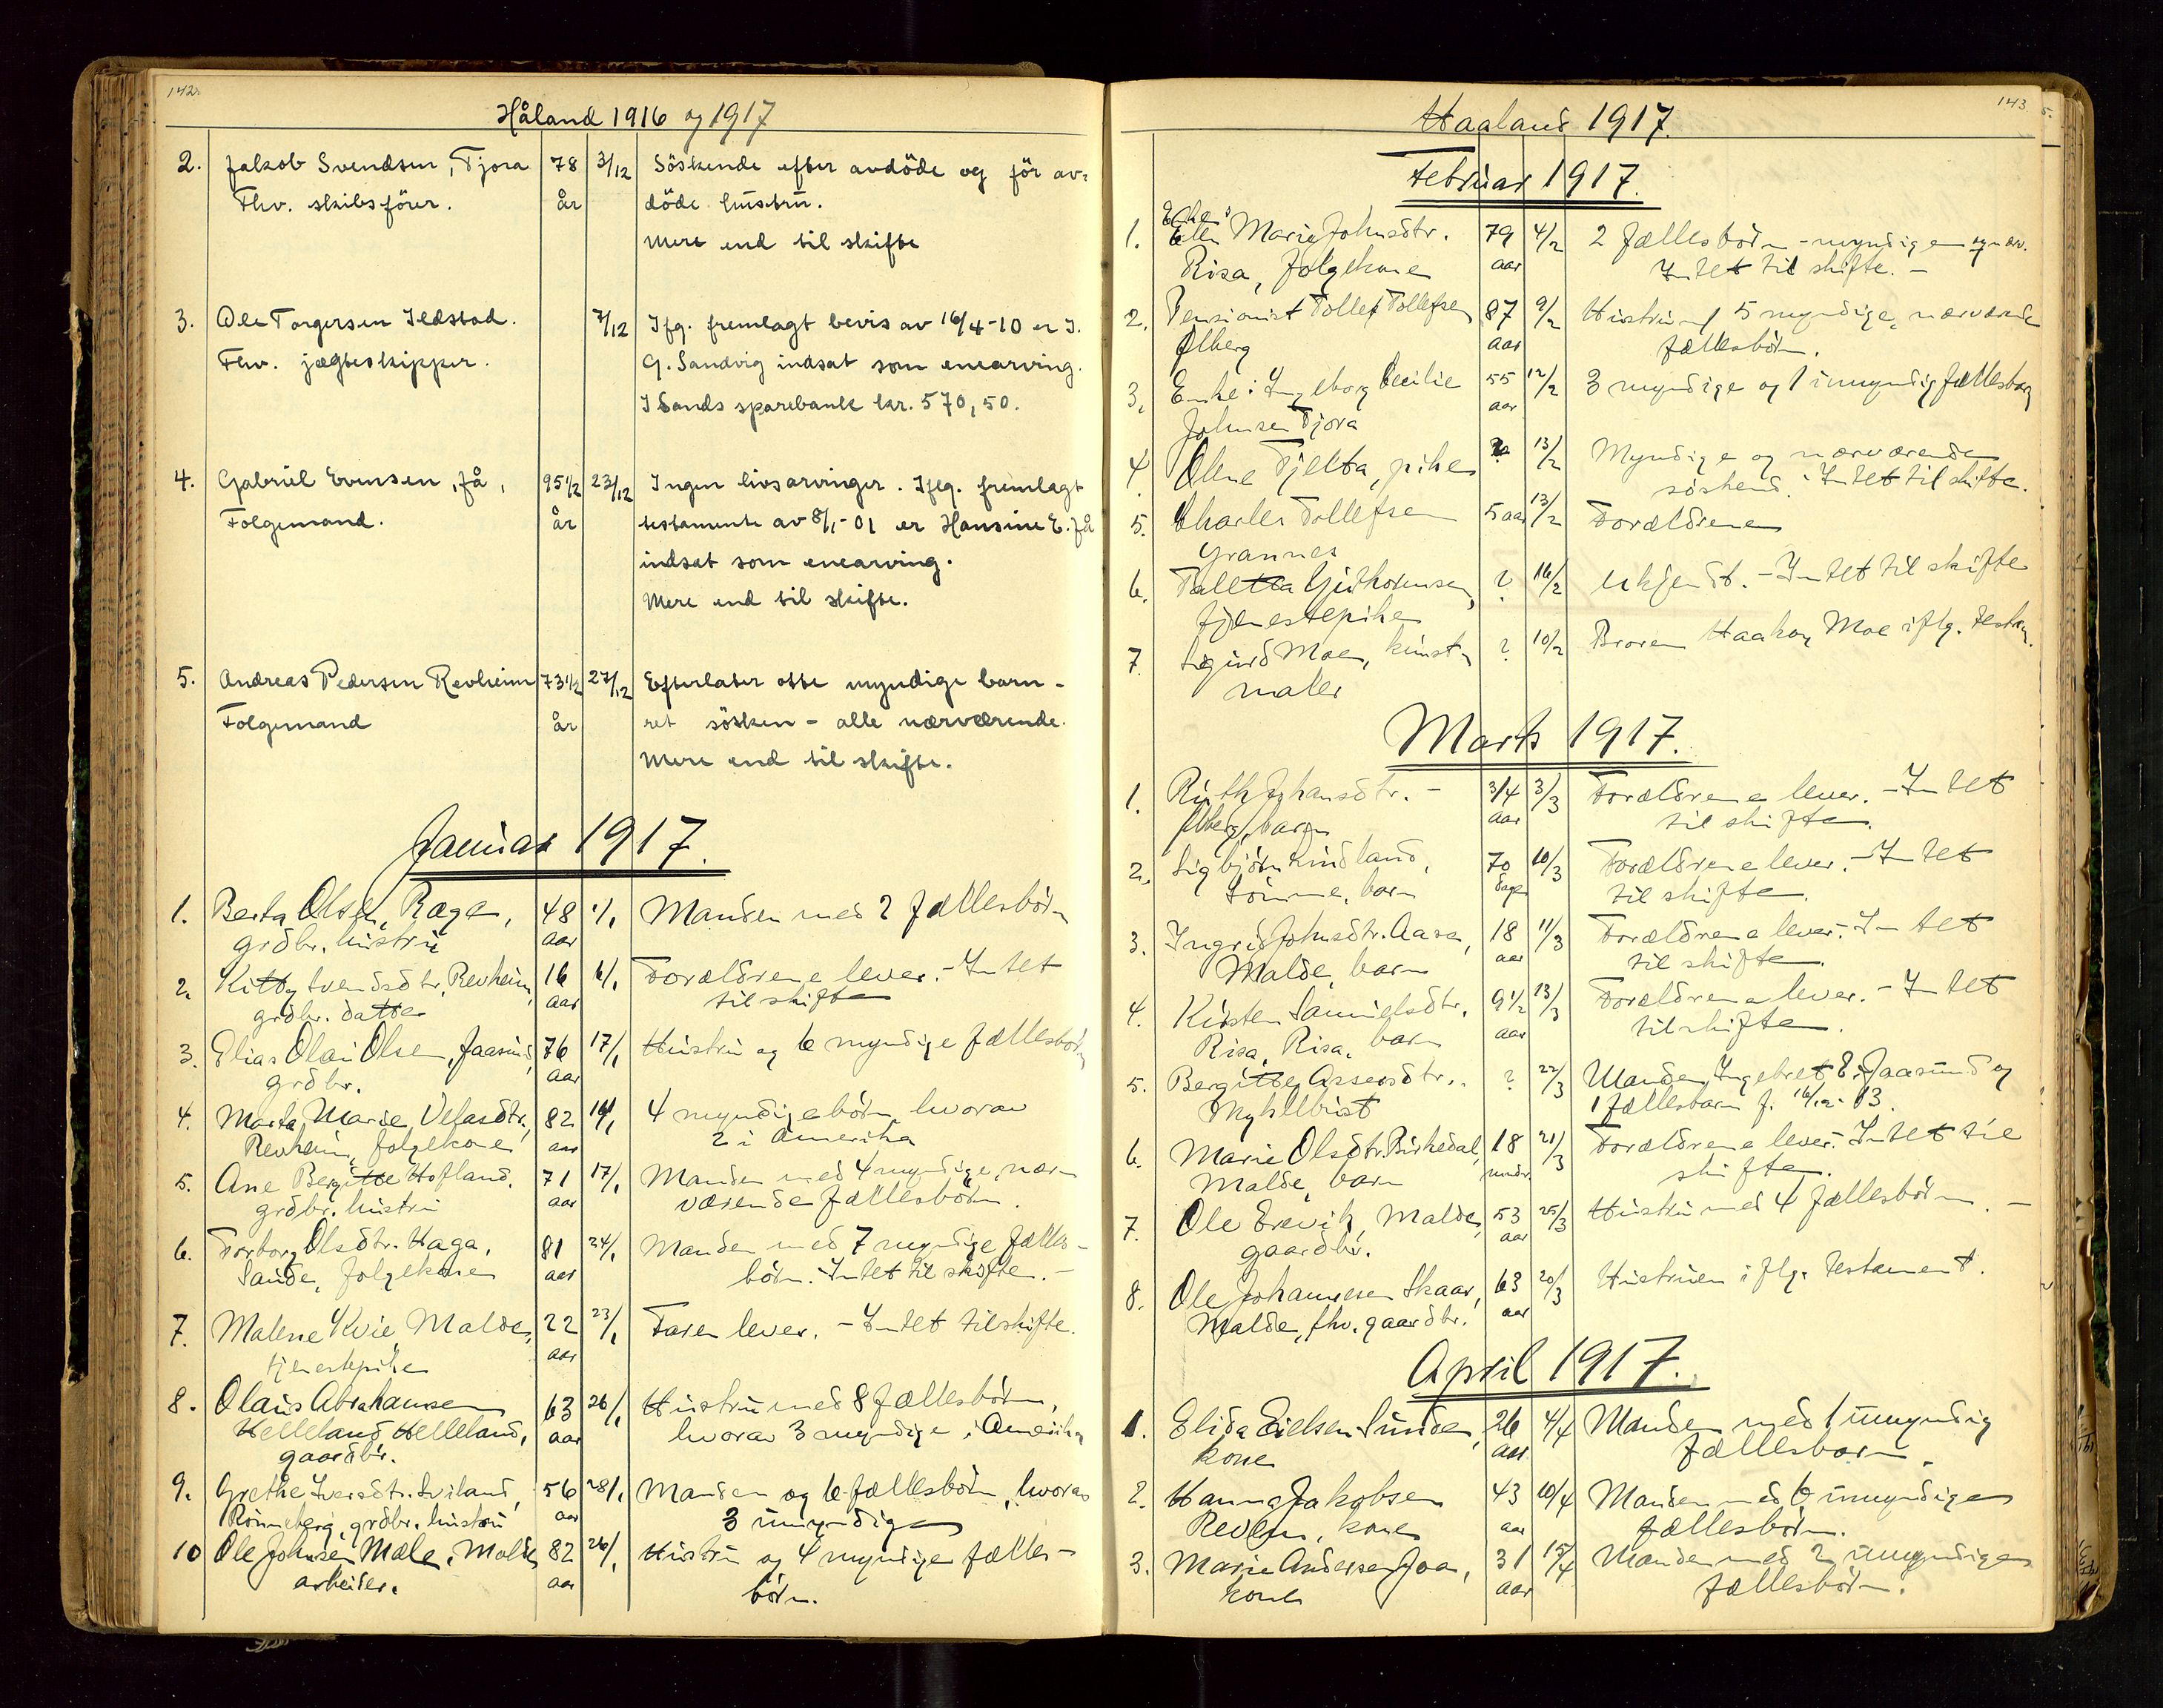 142.
Håland 1916 og 1917
2. Jakob Svendsen, Tjora 78 3/12 Söskende efter avdöde og för av-
Fhv. skibsförer. år döde hustru.
Mere end til skifte
3. Ole Torgersen Ildstad. 7/12 Ifg. fremlagt bevis av 16/4-10 er I.
Fhv. jægteskipper. G. Sandvig indsat som enearving.
I Sands sparebank kr. 570,50.
4. Gabriel Evensen, Jå, 95 1/2 23/12 Ingen livsarvinger. Iflg. fremlagt
Folgemand. år testamente av 8/1-01 er Hansine E. Jå
indsat som enearving.
Mere end til skifte.
5. Andreas Pedersen Revheim 73 1/2 27/12 Efterlater otte myndige barn-
Folgemand år ret sösken - alle nærværende.
Mere end til skifte.
Januar 1917.
1. Berta Olsen, Ræge, 48 1/1 Manden med 2 fællesbörn
grdbr. hustru aar
2. Kitty Svendsdtr. Revheim, 16 6/1 Forældrene lever. - Intet
grdbr. datter aar til skifte
3. Elias Olai Olsen, Jaasund, 76 17/1 Hustru og 6 myndige fællesbörn
grdbr. aar
4. Marta Marie Velasdtr. 82 14/1 4 myndige börn, hvorav
Revheim, folgekone aar 2 i Amerika
5. Ane Bergitte Hofland, 71 17/1 Manden med 4 myndige, nær-
grdbr. hustru aar værende fællesbörn.
6. Torborg Olsdtr. Haga, 81 24/1 Manden med 7 myndige fælles-
Sande, folgekone aar börn. - Intet til skifte. -
7. Malene Kvie Malde, 22 23/1 Faren lever. - Intet til skifte.
tjenestepike aar
8. Olaus Abrahamsen 63 26/1 Hustru med 8 fællesbörn,
Helleland Helleland, aar hvorav 3 myndige i Amerika
gaardbr.
9. Grethe Iversdtr. Sviland, 56 28/1 Manden og 6 fællesbörn, hvorav
Rönneberg, grdbr. hustru aar 3 umyndige
10 Ole Johnsen Mæle, Malde, 82 26/1 Hustru og 4 myndige fælles-
arbeider. aar börn.
143
Haaland 1917.
Februar 1917.
Enke:
1. Ellen Marie Johnsdtr. 79 4/2 2 fællesbörn - myndige og nærv.
Risa, folgekone aar Intet til skifte. -
2. Pensionist Tollef Tollefsen, 87 9/2 Hustru m/ 5 myndige, nærværende
Ølberg aar fællesbörn.
3. Enke: Ingeborg Cecilie 55 12/2 3 myndige og 1 umyndig fællesbarn
Johnsen Tjora aar
4. Oline Tjelta, pike ? 13/2 Myndige og nærværende
söskend. - Intet til skifte.
5. Charles Tollefsen 5 aar 13/2 Forældrene
Grannes
6. Taletta Guthormsen, ? 16/2 Ukjendt. - Intet til skifte
tjenestepike
7. Sigurd Moe, kunst- ? 10/2 Broren Haakon Moe iflg. testam.
maler
Marts 1917.
1. Ruth Johansdtr. - 3/4 3/3 Forældrene lever. - Intet
Ølberg, barn aar til skifte.
2. Sigbjörn Lindland, 70 10/3 Forældrene lever. - Intet
Sömme, barn dage til skifte.
3. Ingrid Johnsdtr. Aase, 18 11/3 Forældrene lever. - Intet
Malde, barn aar til skifte.
4. Kirsten Samuelsdtr. 9 1/2 13/3 Forældrene lever. - Intet
Risa, Risa, barn aar til skifte.
5. Bergitte Assersdtr. ? 22/3 Manden Ingebret E. Jaasund og
Myklebust 1 fællesbarn f. 16/12-03.
6. Marie Olsdtr. Birkedal, 18 21/3 Forældrene lever. - Intet til
Malde, barn mndr. skifte.
7. Ole Erevik, Malde, 53 25/3 Hustru med 4 fællesbörn. -
gaardbr. aar
8. Ole Johannesen Skaar, 63 20/3 Hustruen iflg. testament.
Malde, fhv. gaardbr. aar
April 1917.
1. Elida Eielsen Sunde, 26 4/4 Manden med 1 umyndig
kone aar fællesbarn.
2. Hanna Jakobsen 43 10/4 Manden med 6 umyndige
Revem, kone aar fællesbörn.
3. Marie Andersen Joa, 31 15/4 Manden med 2 umyndige
kone aar fællesbörn.